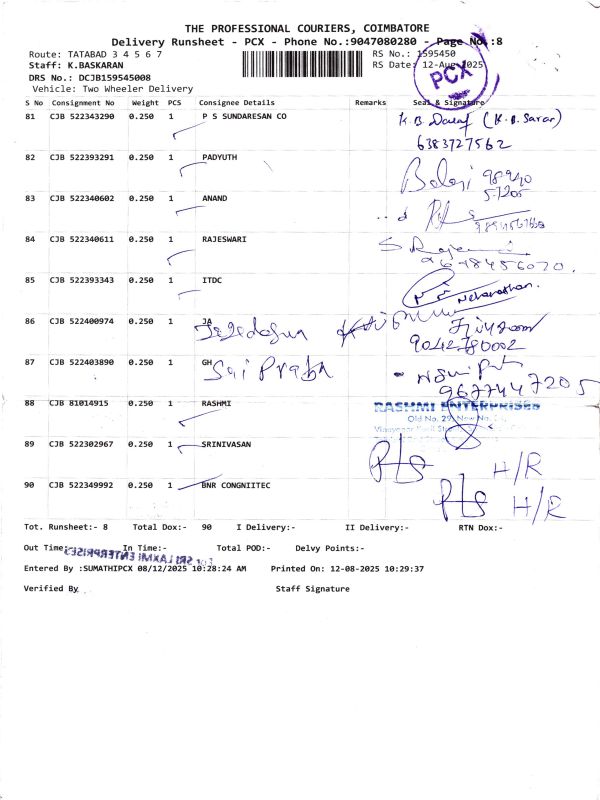 THE PROFESSIONAL COURIERS, COIMBATORE
Delivery Runsheet - PCX - Phone No.:9047080280 - Page No.:8
Route: TATABAD 3 4 5 6 7 RS No.: 1595450
Staff: K.BASKARAN RS Date: 12-Aug-2025
PCX
DRS No.: DCJB159545008
Vehicle: Two Wheeler Delivery
S No Consignment No Weight PCS Consignee Details Remarks Seal & Signature
81 CJB 522343290 0.250 1 P S SUNDARESAN CO
6383727562
82 CJB 522393291 0.250 1 PADYUTH Balaji
83 CJB 522340602 0.250 1 ANAND
84 CJB 522340611 0.250 1 RAJESWARI
85 CJB 522393343 0.250 1 ITDC
86 CJB 522400974 0.250 1 JA
9042780002
87 CJB 522403890 0.250 1 GH Sai Praba
9677447205
88 CJB 81014915 0.250 1 RASHMI RASHMI ENTERPRISES
Old No. 29, New No.
89 CJB 522302967 0.250 1 SRINIVASAN H/R
90 CJB 522349992 0.250 1 BNR CONGNIITEC H/R
Tot. Runsheet:- 8 Total Dox:- 90 I Delivery:- II Delivery:- RTN Dox:-
Out Time:- In Time:- Total POD:- Delvy Points:-
For SRI LAXMI ENTERPRISES
Entered By :SUMATHIPCX 08/12/2025 10:28:24 AM Printed On: 12-08-2025 10:29:37
Verified By Staff Signature